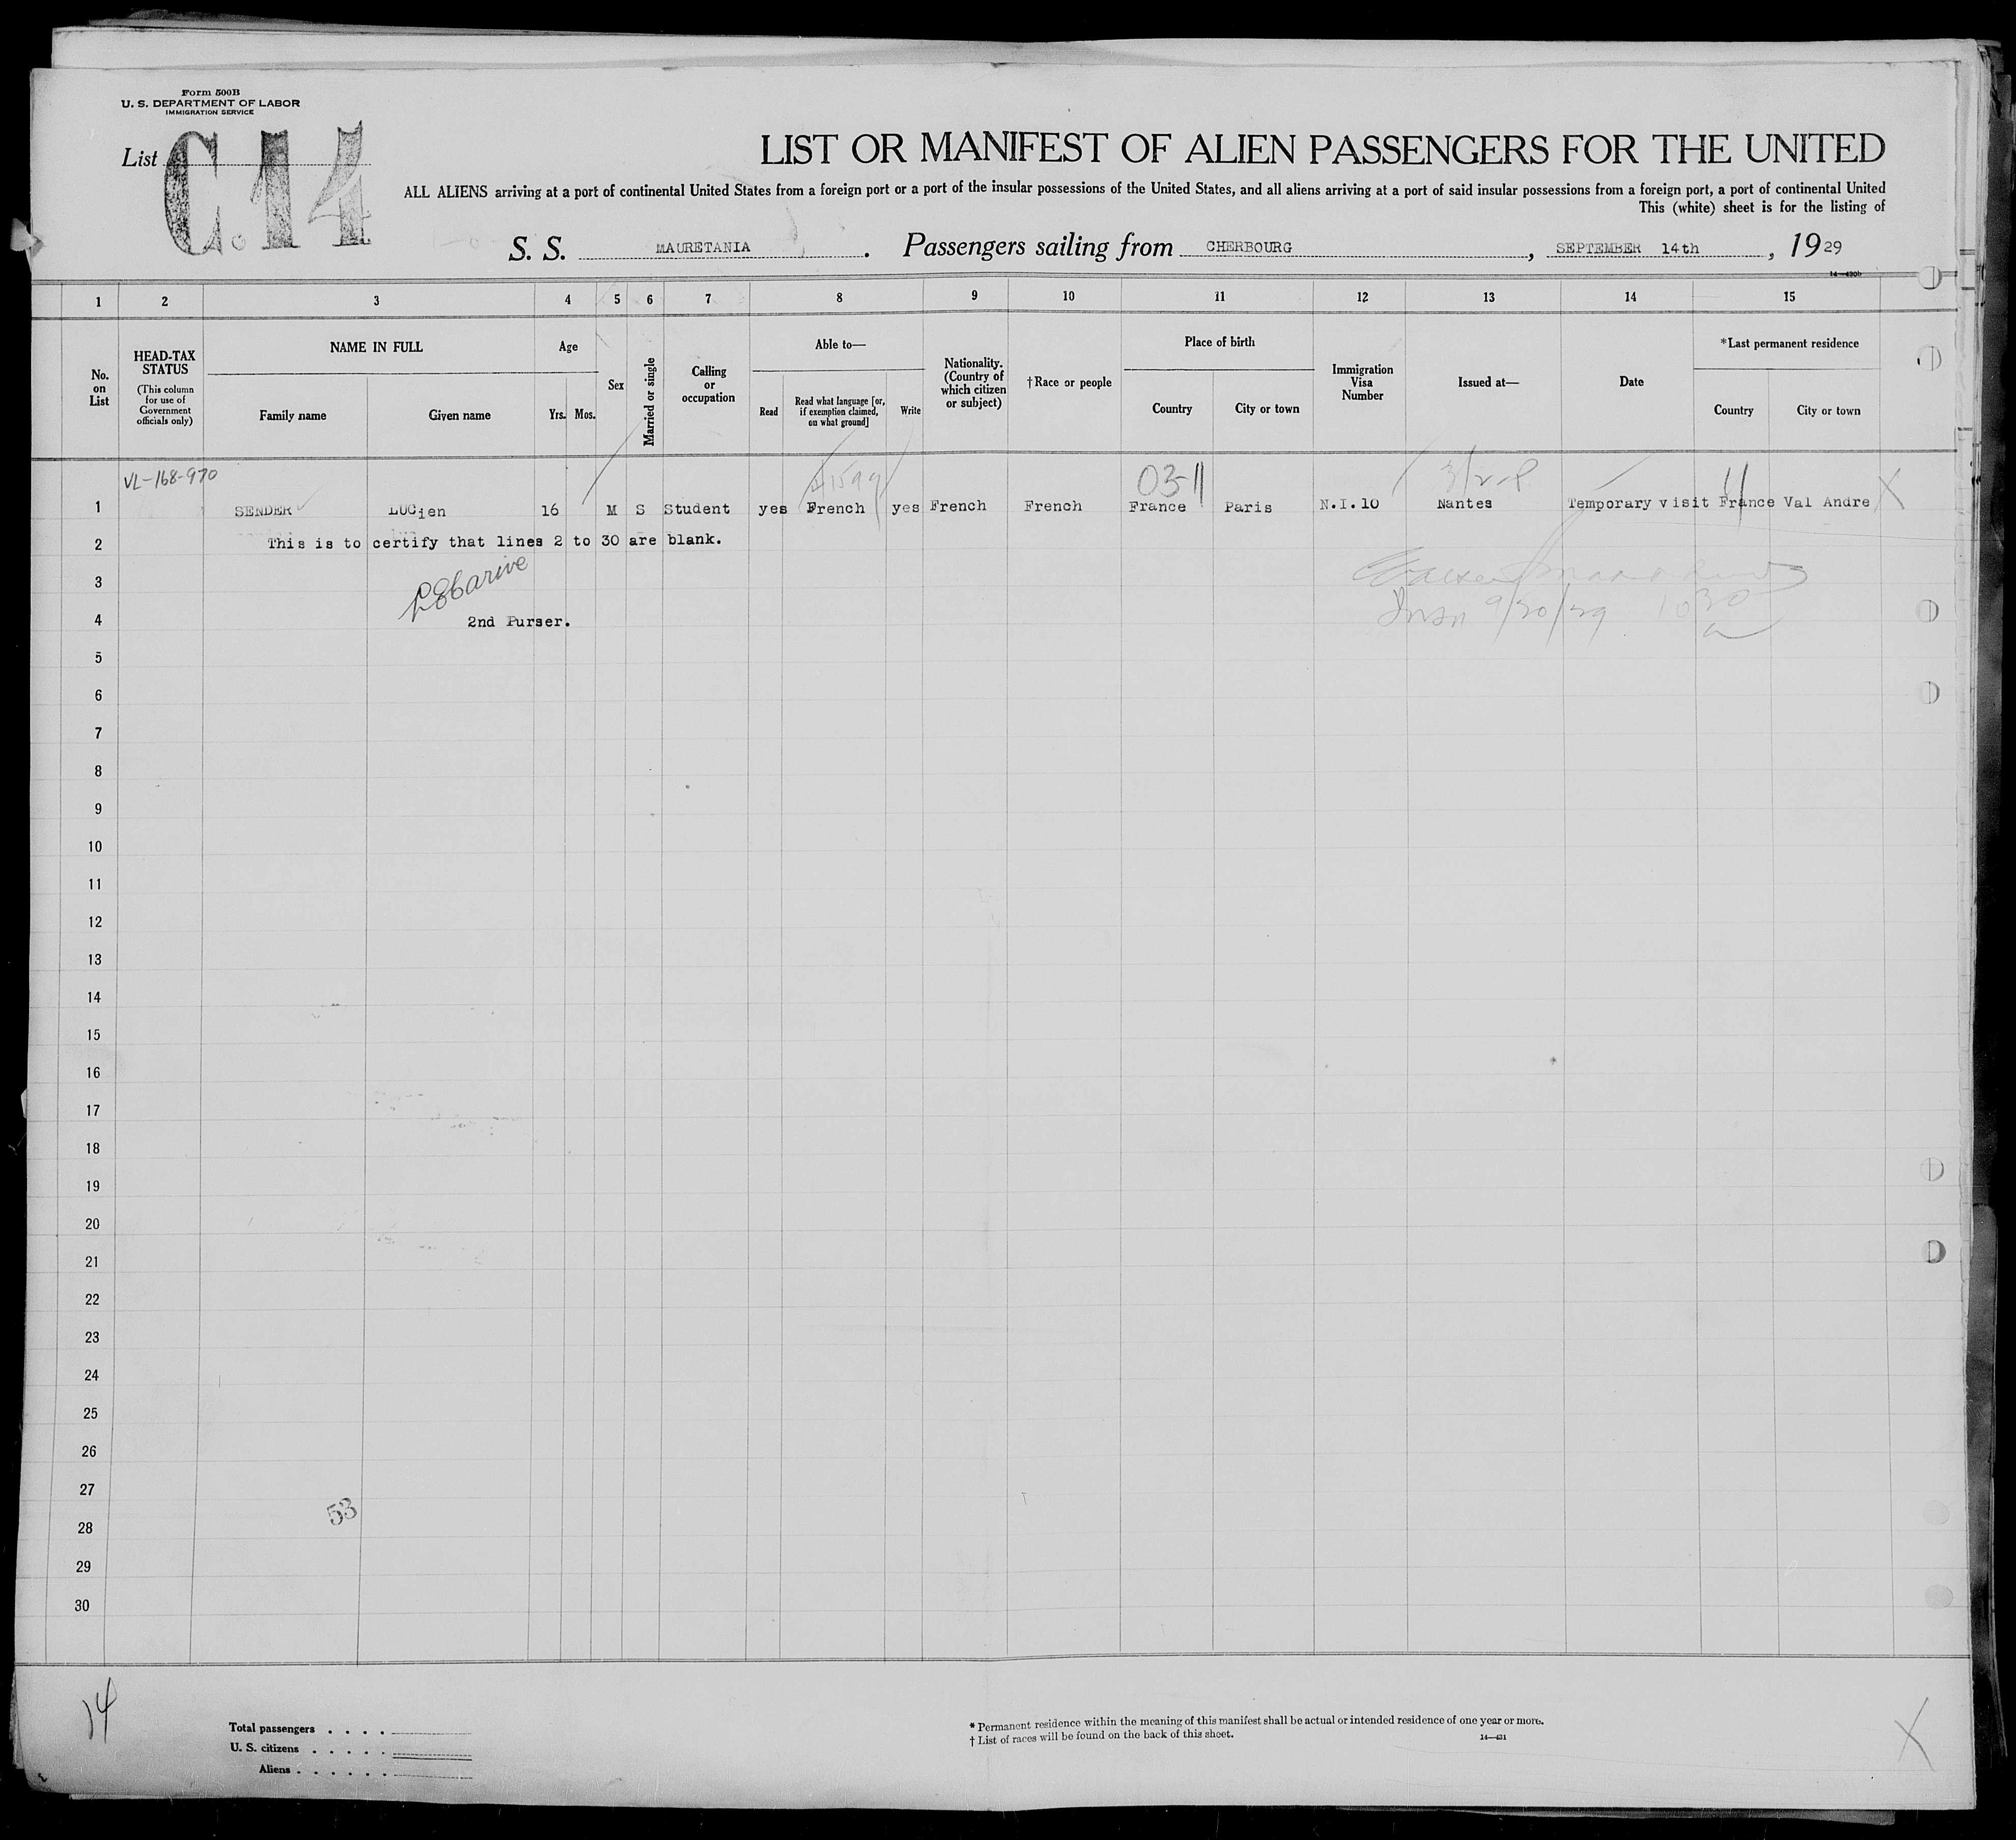 Form 500B
U. S. DEPARTMENT OF LABOR
IMMIGRATION SERVICE
List C.14
LIST OR MANIFEST OF ALIEN PASSENGERS FOR THE UNITED
ALL ALIENS arriving at a port of continental United States from a foreign port or a port of the insular possessions of the United States, and all aliens arriving at a port of said insular possessions from a foreign port, a port of continental United
This (white) sheet is for the listing of
S. S. MAURETANIA. Passengers sailing from CHERBOURG, SEPTEMBER 14th, 1929
14—430b
1 2 3 4 5 6 7 8 9 10 11 12 13 14 15
No. on List
HEAD-TAX STATUS
(This column for use of Government officials only)
NAME IN FULL
Family name
Given name
Age
Yrs. Mos.
Sex
Married or single
Calling or occupation
Able to—
Read
Read what language [or, if exemption claimed, on what ground]
Write
Nationality. (Country of which citizen or subject)
†Race or people
Place of birth
Country
City or town
Immigration Visa Number
Issued at—
Date
*Last permanent residence
Country
City or town
VL-168-970
03-11
1 SENDER LUCien 16 M S Student yes French yes French French France Paris N.I.10 Nantes Temporary visit France Val Andre X
2 This is to certify that lines 2 to 30 are blank.
3
4 2nd Purser.
9/20/29
5
6
7
8
9
10
11
12
13
14
15
16
17
18
19
20
21
22
23
24
25
26
27
53
28
29
30
14
Total passengers . . . .
U. S. citizens . . . . .
Aliens . . . . . .
* Permanent residence within the meaning of this manifest shall be actual or intended residence of one year or more.
† List of races will be found on the back of this sheet.
14—431
X